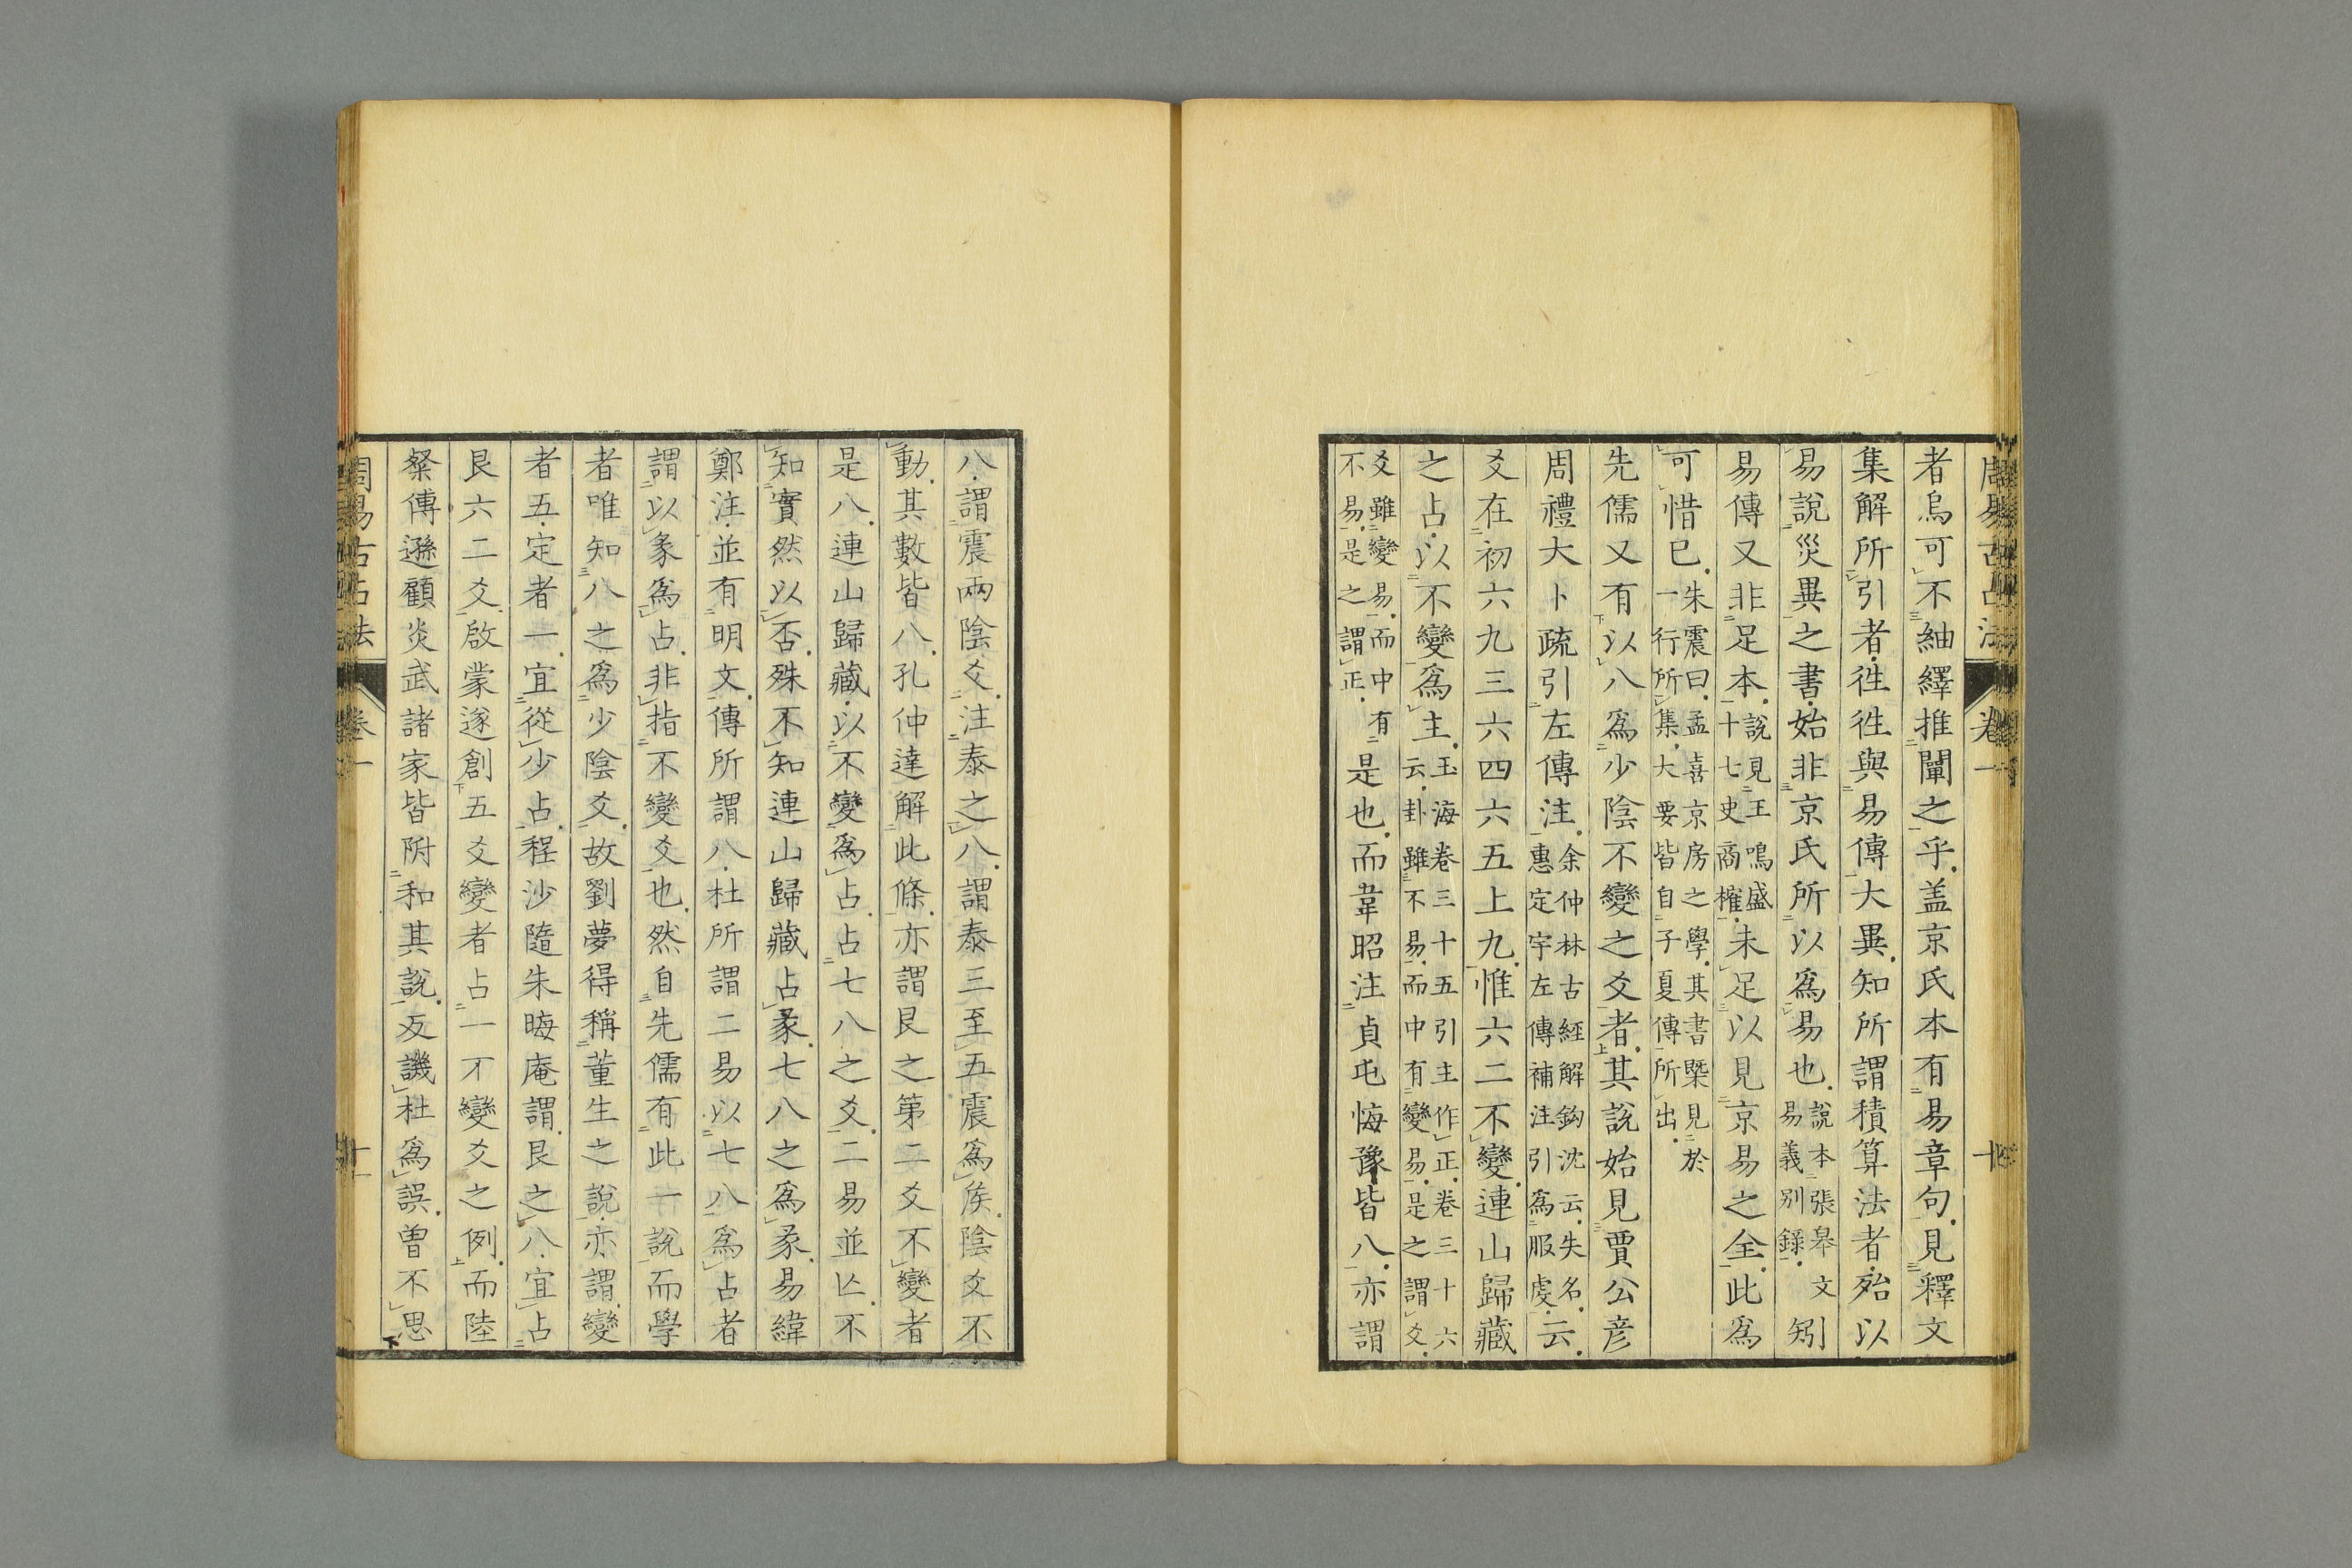 周易古占法 卷一 十
者烏可不紬繹推闡之乎盖京氏本有易章句見釋文
集解所引者徃徃與易傳大異知所謂積算法者殆以
易說災異之書始非京氏所以爲易也說本張皋文易義別録矧
易傳又非足本說見王鳴盛十七史商榷未足以見京易之全此爲
可惜已朱震曰孟喜京房之學其書槩見於一行所集大要皆自子夏傳所出
先儒又有以八爲少陰不變之爻者其說始見賈公彦
周禮大卜疏引左傳注余仲林古經解鈎沈云失名惠定宇左傳補注引爲服虔云
爻在初六九三六四六五上九惟六二不變連山歸藏
之占以不變爲主玉海卷三十五引主作正卷三十六云卦雖不易而中有變易是之謂爻
爻雖變易而中有不易是之謂正是也而韋昭注貞屯悔豫皆八亦謂
八謂震兩陰爻注泰之八謂泰三至五震爲侯陰爻不
動其數皆八孔仲達解此條亦謂艮之第二爻不變者
是八連山歸藏以不變爲占占七八之爻二易並亾不
知實然以否殊不知連山歸藏占彖七八之爲彖易緯
鄭注並有明文傳所謂八杜所謂二易以七八爲占者
謂以彖爲占非指不變爻也然自先儒有此一說而學
者唯知八之爲少陰爻故劉夢得稱董生之說亦謂變
者五定者一宜從少占程沙隨朱晦庵謂艮之八宜占
艮六二爻啟蒙遂創五爻變者占一不變爻之例而陸
粲傅遜顧炎武諸家皆附和其說反譏杜爲誤曽不思
周易古占法 卷一 十一